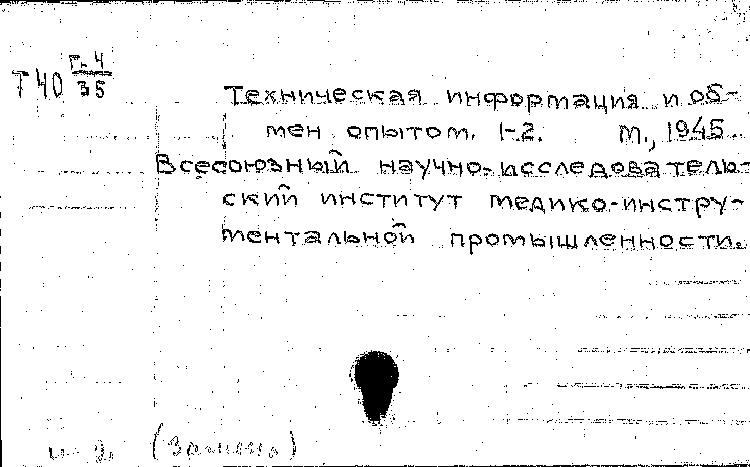 Т40 Г-4/35
Техническая информация и об-
мен опытом. 1-2. М., 1945.
Всесоюзный научно-исследователь-
ский институт медико-инстру-
ментальной промышленности.